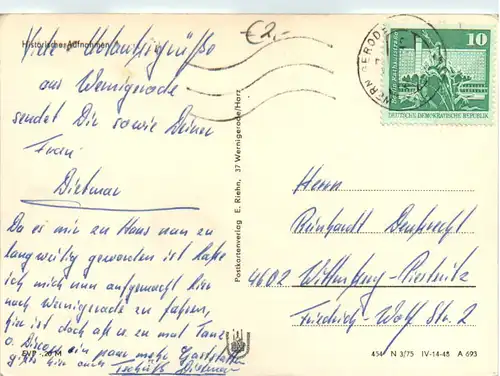 Historische Aufnahmen
€2,-
Viele Urlaubsgrüße
aus Wernigerode
sendet Dir sowie Deiner
Frau
Dietmar
Da es mir zu Haus nun zu
langweilig geworden ist habe
ich mich nun aufgemacht hier
nach Wernigerode zu fahren,
hier ist doch ab u. zu mal Tanz
o. Disco ein paar mehr Gaststätten
gibts hier auch Tschüß Dietmar
EVP -,20 M
Postkartenverlag E. Riehn, 37 Wernigerode/Harz
WERNIGERODE
10
Berlin, Rathausstraße
DEUTSCHE DEMOKRATISCHE REPUBLIK
Herrn
Reinhardt
4602 Wittenberg-Piesteritz
Friedrich-Wolf Str. 2
454 N 3/75 IV-14-45 A 693